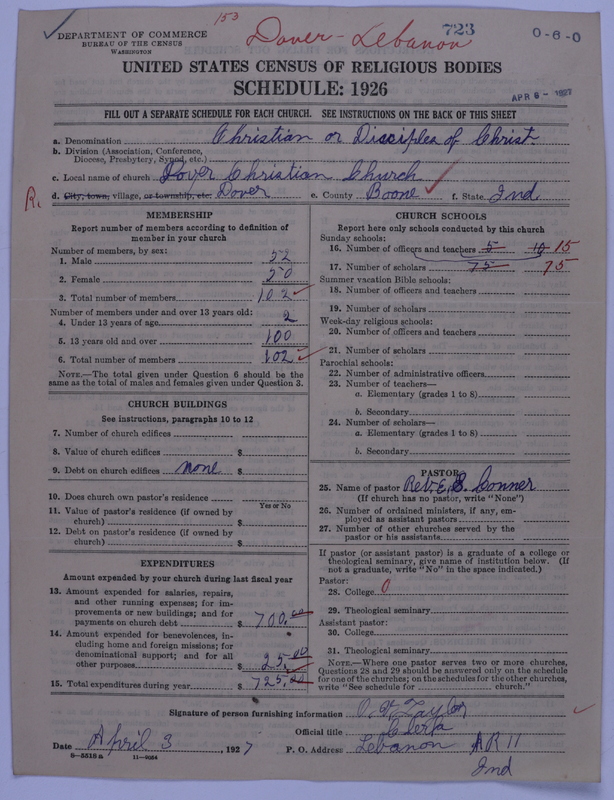 153
723
0-6-0
DEPARTMENT OF COMMERCE
BUREAU OF THE CENSUS
WASHINGTON
Dover - Lebanon
UNITED STATES CENSUS OF RELIGIOUS BODIES
SCHEDULE: 1926
APR 6 - 1927
FILL OUT A SEPARATE SCHEDULE FOR EACH CHURCH. SEE INSTRUCTIONS ON THE BACK OF THIS SHEET
a. Denomination Christian or Disciples of Christ.
b. Division (Association, Conference,
Diocese, Presbytery, Synod, etc.)
c. Local name of church Dover Christian Church
R.
d. City, town, village, or township, etc. Dover e. County Boone f. State Ind
MEMBERSHIP
Report number of members according to definition of
member in your church
Number of members, by sex:
1. Male 52
2. Female 50
3. Total number of members 102
Number of members under and over 13 years old:
4. Under 13 years of age 2
5. 13 years old and over 100
6. Total number of members 102
NOTE.—The total given under Question 6 should be the
same as the total of males and females given under Question 3.
CHURCH BUILDINGS
See instructions, paragraphs 10 to 12
7. Number of church edifices
8. Value of church edifices $
9. Debt on church edifices none $
10. Does church own pastor's residence
Yes or No
11. Value of pastor's residence (if owned by
church) $
12. Debt on pastor's residence (if owned by
church) $
EXPENDITURES
Amount expended by your church during last fiscal year
13. Amount expended for salaries, repairs,
and other running expenses; for im-
provements or new buildings; and for
payments on church debt $ 700.00
14. Amount expended for benevolences, in-
cluding home and foreign missions; for
denominational support; and for all
other purposes $ 25.00
15. Total expenditures during year $ 725.00
CHURCH SCHOOLS
Report here only schools conducted by this church
Sunday schools:
16. Number of officers and teachers 5 10 15
17. Number of scholars 75 75
Summer vacation Bible schools:
18. Number of officers and teachers
19. Number of scholars
Week-day religious schools:
20. Number of officers and teachers
21. Number of scholars
Parochial schools:
22. Number of administrative officers
23. Number of teachers—
a. Elementary (grades 1 to 8)
b. Secondary
24. Number of scholars—
a. Elementary (grades 1 to 8)
b. Secondary
PASTOR
25. Name of pastor Rev. E. B. Conner
(If church has no pastor, write "None")
26. Number of ordained ministers, if any, em-
ployed as assistant pastors
27. Number of other churches served by the
pastor or his assistants
If pastor (or assistant pastor) is a graduate of a college or
theological seminary, give name of institution below. (If
not a graduate, write "No" in the space indicated.)
Pastor:
28. College 0
29. Theological seminary
Assistant pastor:
30. College
31. Theological seminary
NOTE.—Where one pastor serves two or more churches,
Questions 28 and 29 should be answered only on the schedule
for one of the churches; on the schedules for the other churches,
write "See schedule for church."
Signature of person furnishing information Taylor
Official title Clerk
Date April 3, 1927 P. O. Address Lebanon R 11
Ind
8-5518a 11-9084